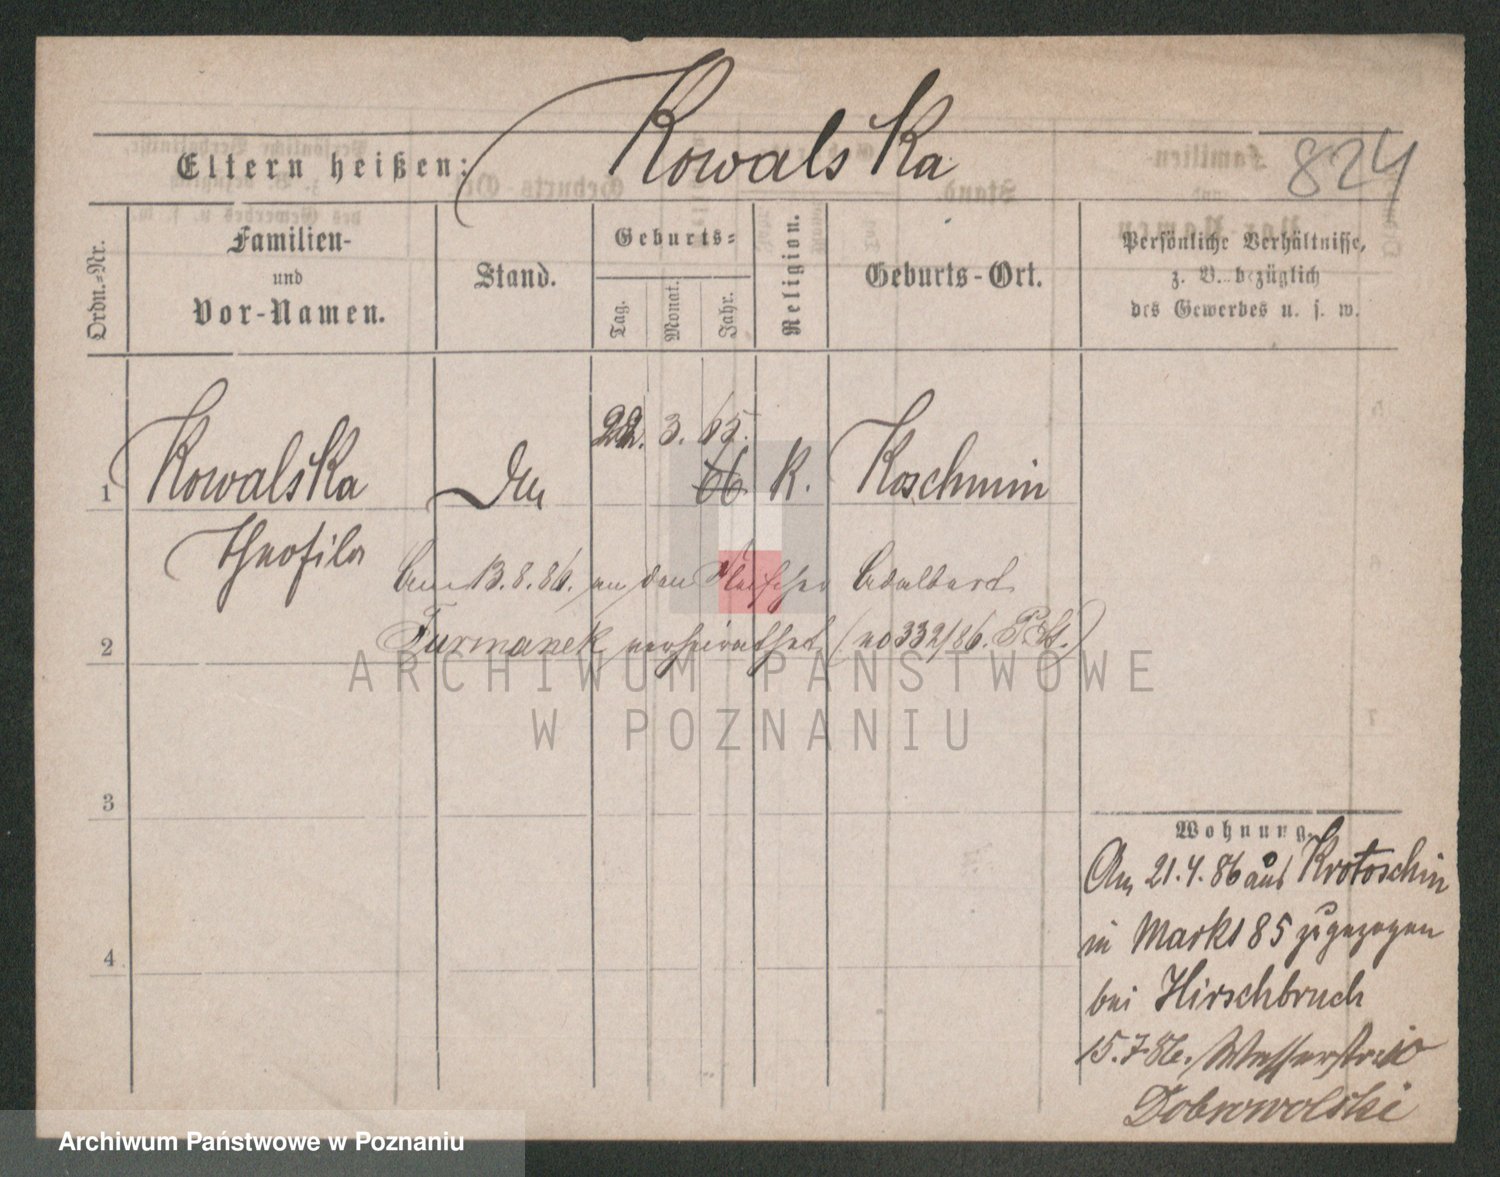 Kowalska
824
Eltern heißen:
Ordn.-Nr.
Familien-
und
Vor-Namen.
Stand.
Geburts-
Tag.
Monat.
Jahr.
Religion.
Geburts-Ort.
Persönliche Verhältnisse,
z. B. bezüglich
des Gewerbes u. s. w.
22. 3. 65.
1 Kowalska 66 K. Koschmin
Theofila
Am 13.8.86. an den Fleischer Adalbert
2 Furmanek verheirathet (no 332/86. )
ARCHIWUM PAŃSTWOWE
W POZNANIU
3
4
Wohnung.
Am 21.4.86 aus Krotoschin
in Markt 85 zugezogen
bei Hirschbruch
15.7.86. Wasserstr. 10
Dobrowolski
Archiwum Państwowe w Poznaniu